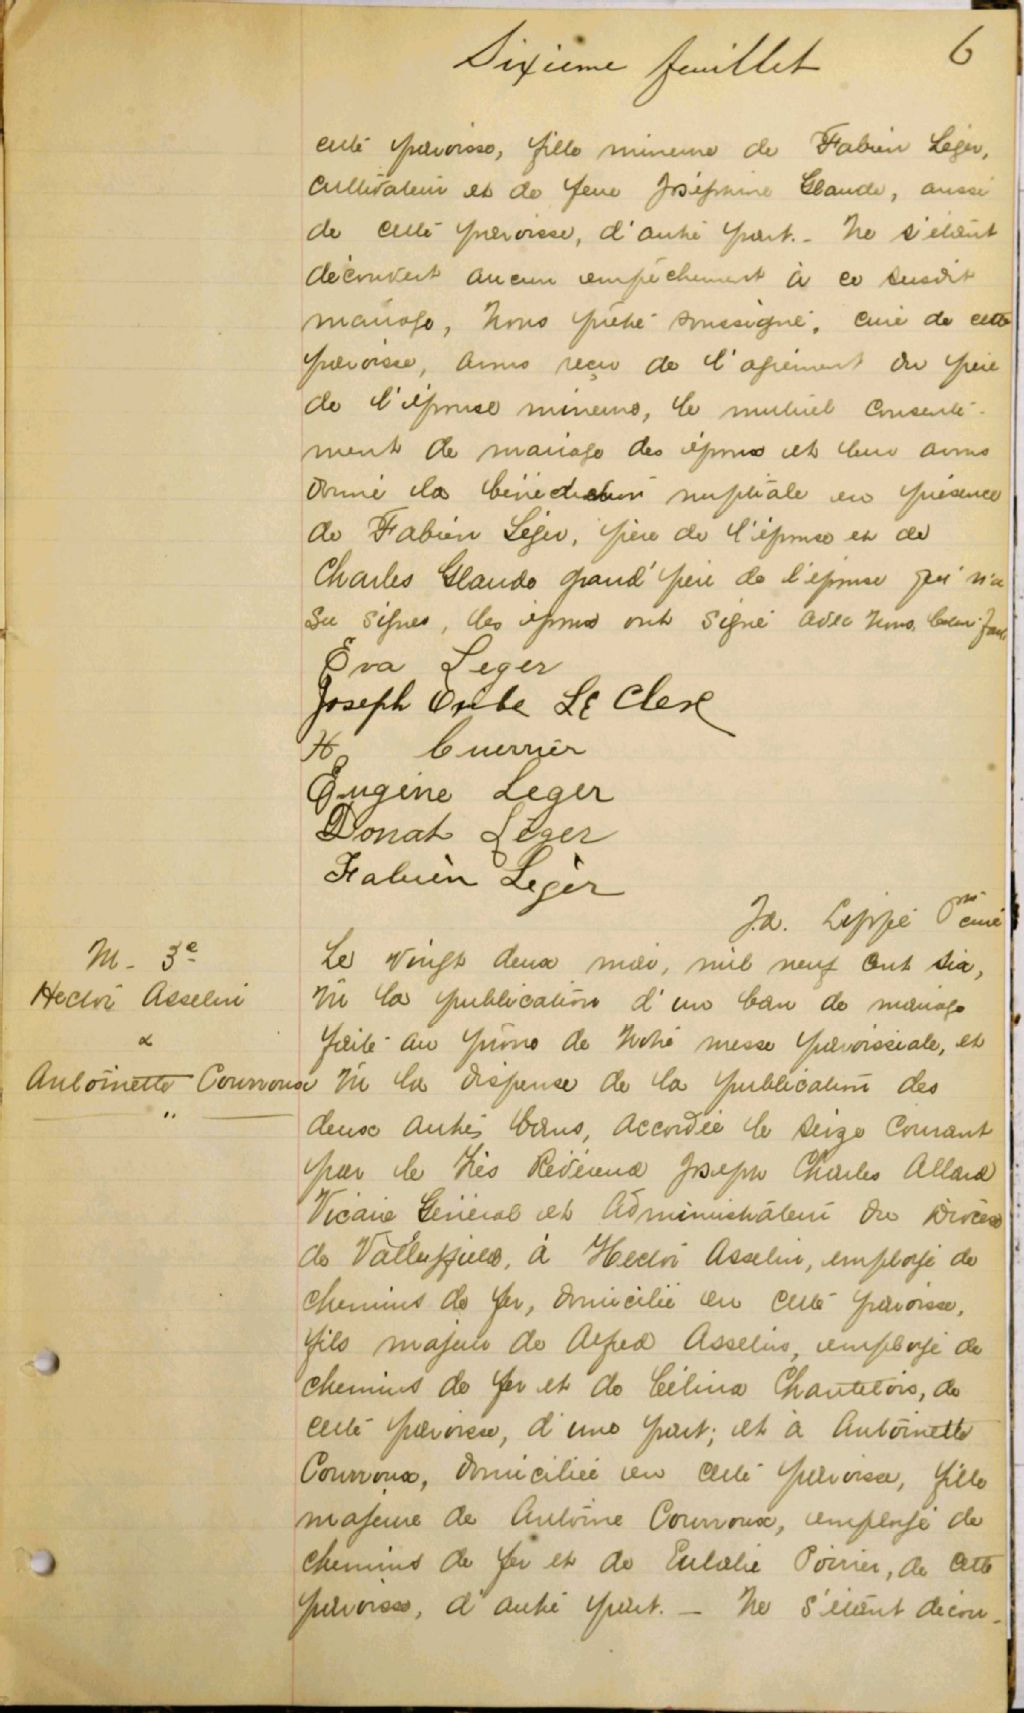 Sixième feuillet 6
cette paroisse, fille mineure de Fabien Léger,
cultivateur et de feue Joséphine Glaude, aussi
de cette paroisse, d'autre part. - Ne s'étant
découvert aucun empêchement à ce susdit
mariage, Nous prêtre soussigné, curé de cette
paroisse, avons reçu de l'agrément du père
de l'épouse mineure, le mutuel consente-
ment de mariage des époux et leur avons
donné la bénédiction nuptiale en présence
de Fabien Léger, père de l'épouse et de
Charles Glaude grand'père de l'épouse qui n'a
su signer, les époux ont signé avec Nous.
Eva Leger
Joseph Le Clerc
H Cuerrier
Eugène Leger
Donat Léger
Fabièn Legèr
J.A. Lippé Ptre curé
M - 3e
Hector Asselin
&
Antoinette Courroux
"
Le vingt deux mai, mil neuf cent six,
Vu la publication d'un ban de mariage
faite au prône de Notre messe paroissiale, et
Vu la dispense de la publication des
deux autres bans, accordée le seize courant
par le Très Révérend Joseph Charles Allard
Vicaire Général et Administrateur du Diocèse
de Valleyfield, à Hector Asselin, employé de
chemins de fer, domicilié en cette paroisse,
fils majeur de Alfred Asselin, employé de
chemins de fer et de Célina Chantelois, de
cette paroisse, d'une part; et à Antoinette
Courroux, domiciliée en cette paroisse, fille
majeure de Antoine Courroux, employé de
chemins de fer et de Eulalie Poirier, de cette
paroisse, d'autre part. - Ne s'étant décou-